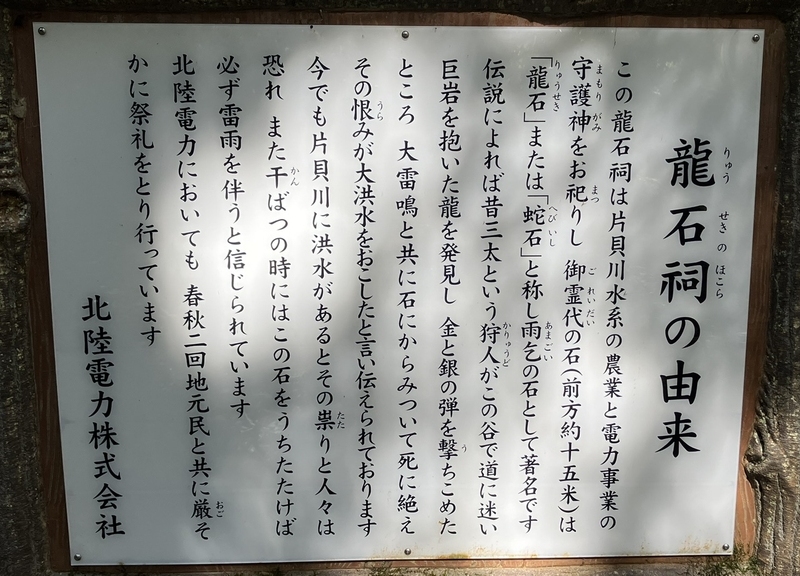 龍石祠の由来
りゅう せきの ほこら
この龍石祠は片貝川水系の農業と電力事業の
守護神をお祀りし 御霊代の石(前方約十五米)は
まもり がみ まつ ご れい だい
「龍石」または「蛇石」と称し雨乞の石として著名です
りゅうせき へび いし あまごい
伝説によれば昔三太という狩人がこの谷で道に迷い
かりゅうど
巨岩を抱いた龍を発見し 金と銀の弾を撃ちこめた
う
ところ 大雷鳴と共に石にからみついて死に絶え
その恨みが大洪水をおこしたと言い伝えられております
うら
今でも片貝川に洪水があるとその祟りと人々は
たた
恐れ また干ばつの時にはこの石をうちたたけば
かん
必ず雷雨を伴うと信じられています
北陸電力においても 春秋二回地元民と共に厳そ
おご
かに祭礼をとり行っています
北陸電力株式会社